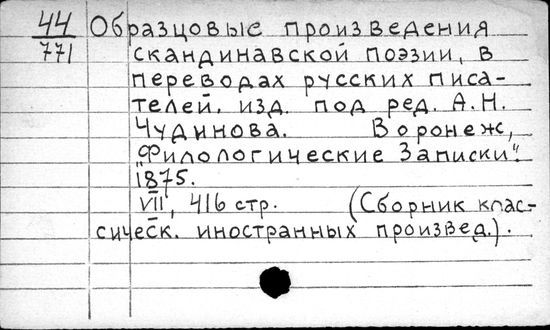 44 Образцовые произведения
771 скандинавской поэзии, в
переводах русских писа-
телей. изд. под ред. А.Н.
Чудинова. Воронеж,
"Филологические Записки".
1875.
VII, 416 стр. (Сборник клас-
сическ. иностранных произвед.).